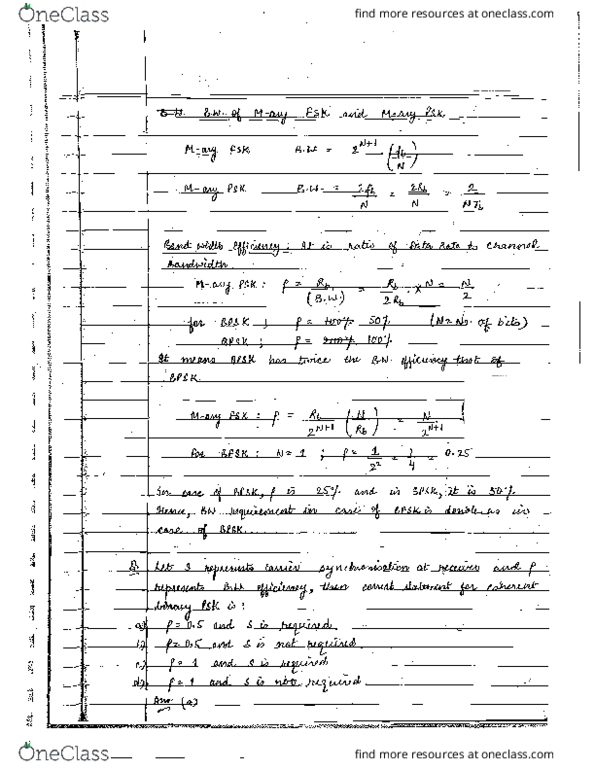 OneClass
find more resources at oneclass.com
B.W. of M-ary FSK and M-ary PSK
M-ary FSK B.W = 2^{N+1} (f_b/N)
M-ary PSK B.W = 2f_b/N = 2R_b/N = 2/(N T_b)
Band width Efficiency: It is ratio of Data Rate to channel
Bandwidth.
M-ary PSK: ρ = R_b/(B.W.) = R_b/(2R_b) × N = N/2
for BPSK ; ρ = 50% (N = No. of bits)
ρ = 100%
It means has twice the B.W. efficiency that of
BPSK.
M-ary FSK: ρ = R_b/2^{N+1} (N/R_b) = N/2^{N+1}
for BFSK: N=1 ; ρ = 1/2^2 = 1/4 = 0.25
In case of BFSK, ρ is 25% and in BPSK, it is 50%.
Hence, BW requirement in case of is as in
case of BPSK.
Q. Let S represents carrier synchronisation at receiver and ρ
represents B.W efficiency, then correct statement for coherent
binary PSK is:
a) ρ = 0.5 and S is required
b) ρ = 0.5 and S is not required
c) ρ = 1 and S is required
d) ρ = 1 and S is not required
Ans (a)
OneClass
find more resources at oneclass.com